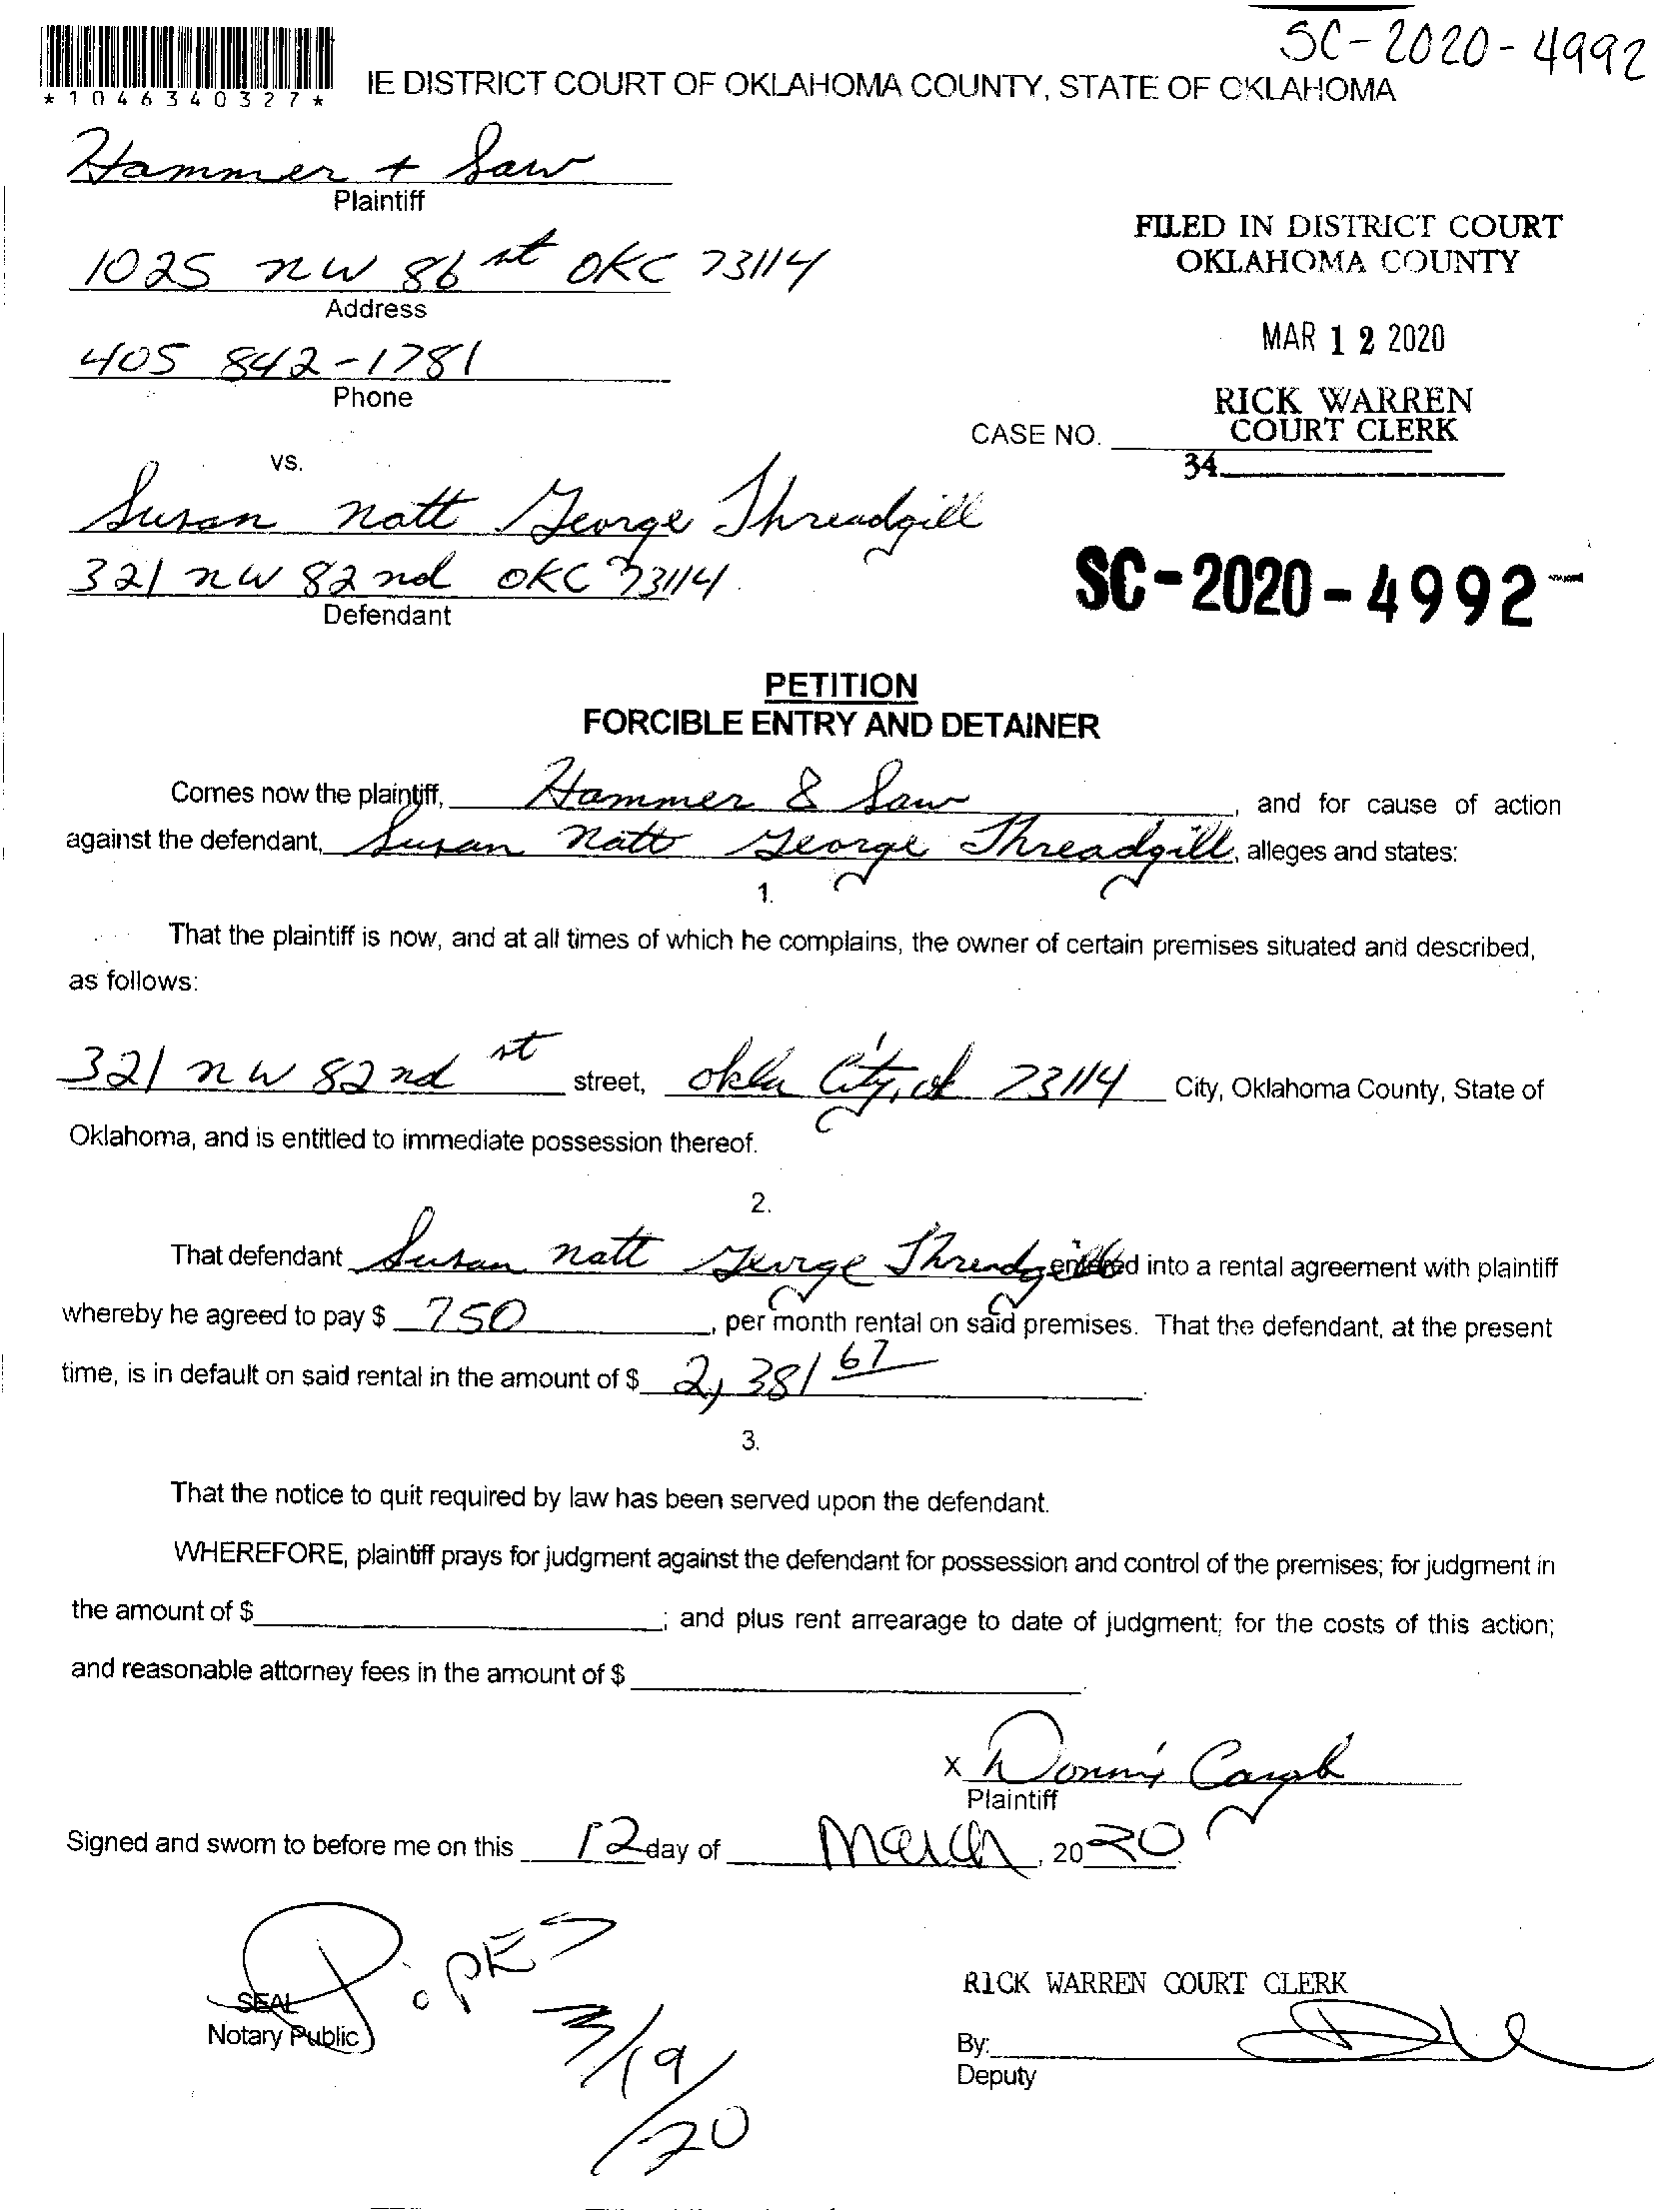 SC-2020-4992
*1046340327*
IE DISTRICT COURT OF OKLAHOMA COUNTY, STATE OF OKLAHOMA
Hammer + Saw
Plaintiff
1025 NW 86 st OKC 73114
Address
405 842-1781
Phone
FILED IN DISTRICT COURT
OKLAHOMA COUNTY
MAR 12 2020
RICK WARREN
COURT CLERK
CASE NO.
34
vs.
Susan Natt George Threadgill
321 NW 82nd OKC 73114
Defendant
SC-2020-4992
PETITION
FORCIBLE ENTRY AND DETAINER
Comes now the plaintiff, Hammer & Saw, and for cause of action
against the defendant, Susan Natt George Threadgill, alleges and states:
1.
That the plaintiff is now, and at all times of which he complains, the owner of certain premises situated and described,
as follows:
321 NW 82nd st street, Okla City, ok 73114 City, Oklahoma County, State of
Oklahoma, and is entitled to immediate possession thereof.
2.
That defendant Susan Natt George Threadgill entered into a rental agreement with plaintiff
whereby he agreed to pay $ 750, per month rental on said premises. That the defendant, at the present
time, is in default on said rental in the amount of $ 2,381 67.
3.
That the notice to quit required by law has been served upon the defendant.
WHEREFORE, plaintiff prays for judgment against the defendant for possession and control of the premises; for judgment in
the amount of $ ; and plus rent arrearage to date of judgment; for the costs of this action;
and reasonable attorney fees in the amount of $ .
x
Plaintiff
Signed and sworn to before me on this 12 day of March, 2020
SEAL
Notary Public
3/19/20
RICK WARREN COURT CLERK
By:
Deputy